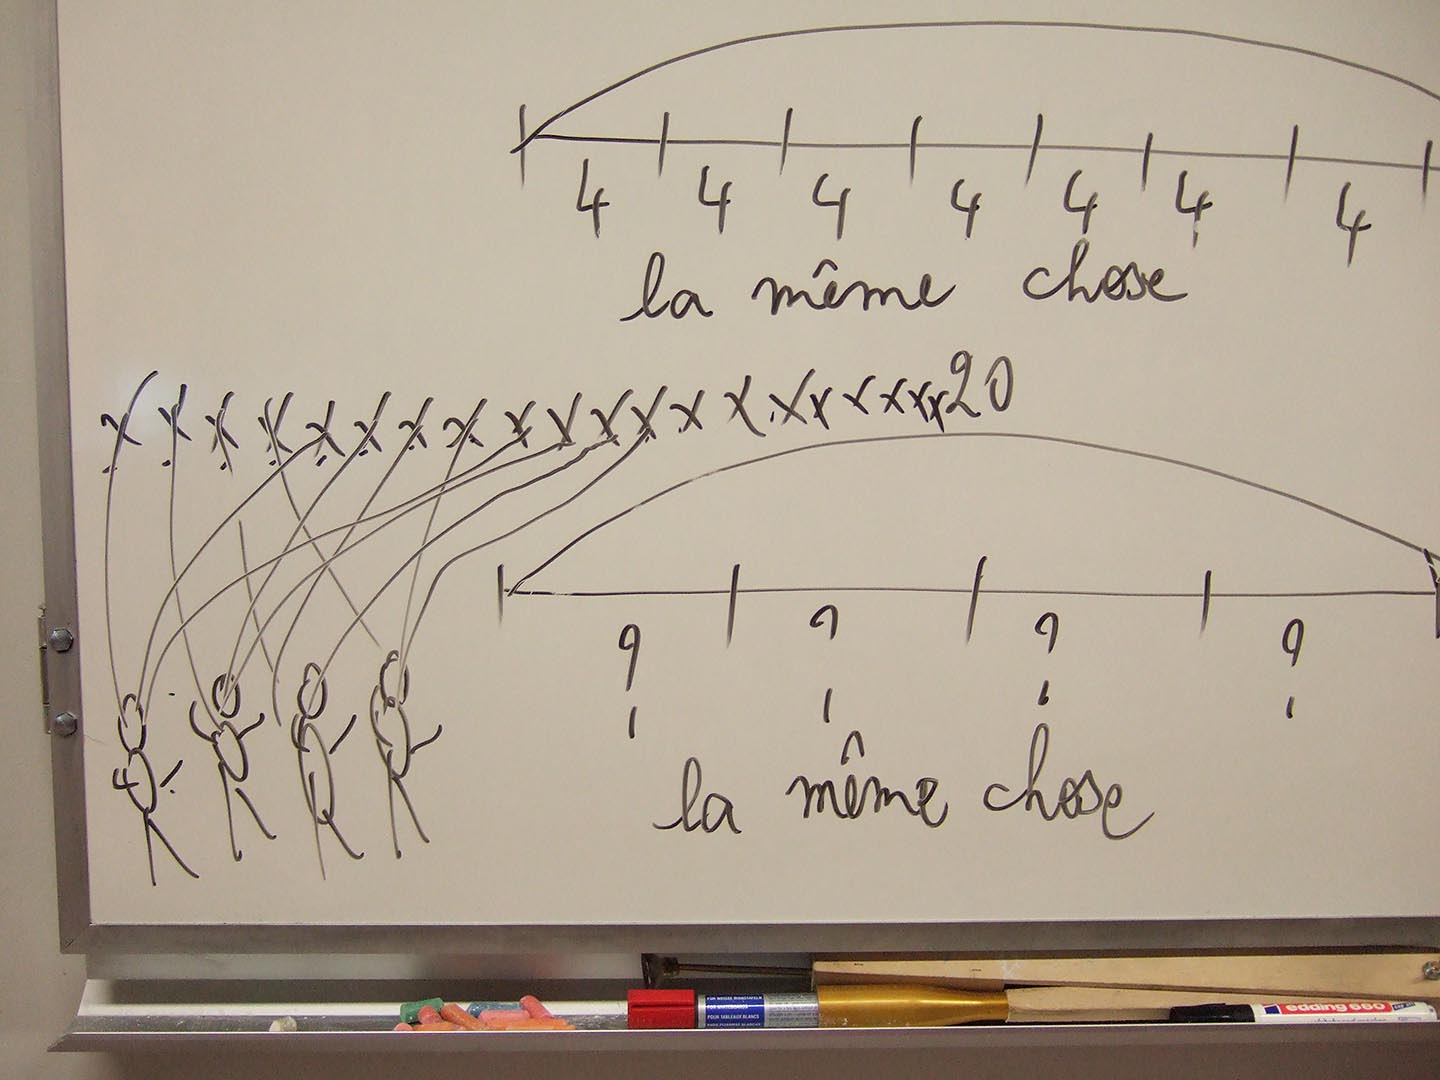 4 4 4 4 4 4 4
la même chose
x x x x x x x x x x x x x x x x x x x x 20
? ? ? ?
la même chose
FOR WHITEBOARDS
POUR TABLEAUX BLANCS
edding 660